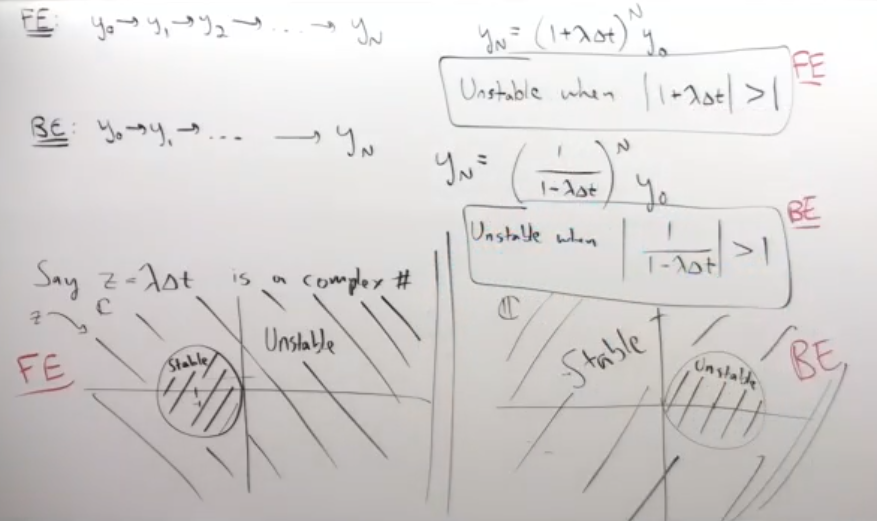 FE: y₀→y₁→y₂→...→ y_N
y_N = (1+λΔt)^N y₀
FE
Unstable when |1+λΔt| >1
BE: y₀→y₁→... → y_N
y_N = (1/(1-λΔt))^N y₀
BE
Unstable when |1/(1-λΔt)| >1
Say z=λΔt is a complex #
z
ℂ
FE
Stable
-1
Unstable
ℂ
Stable
Unstable
BE